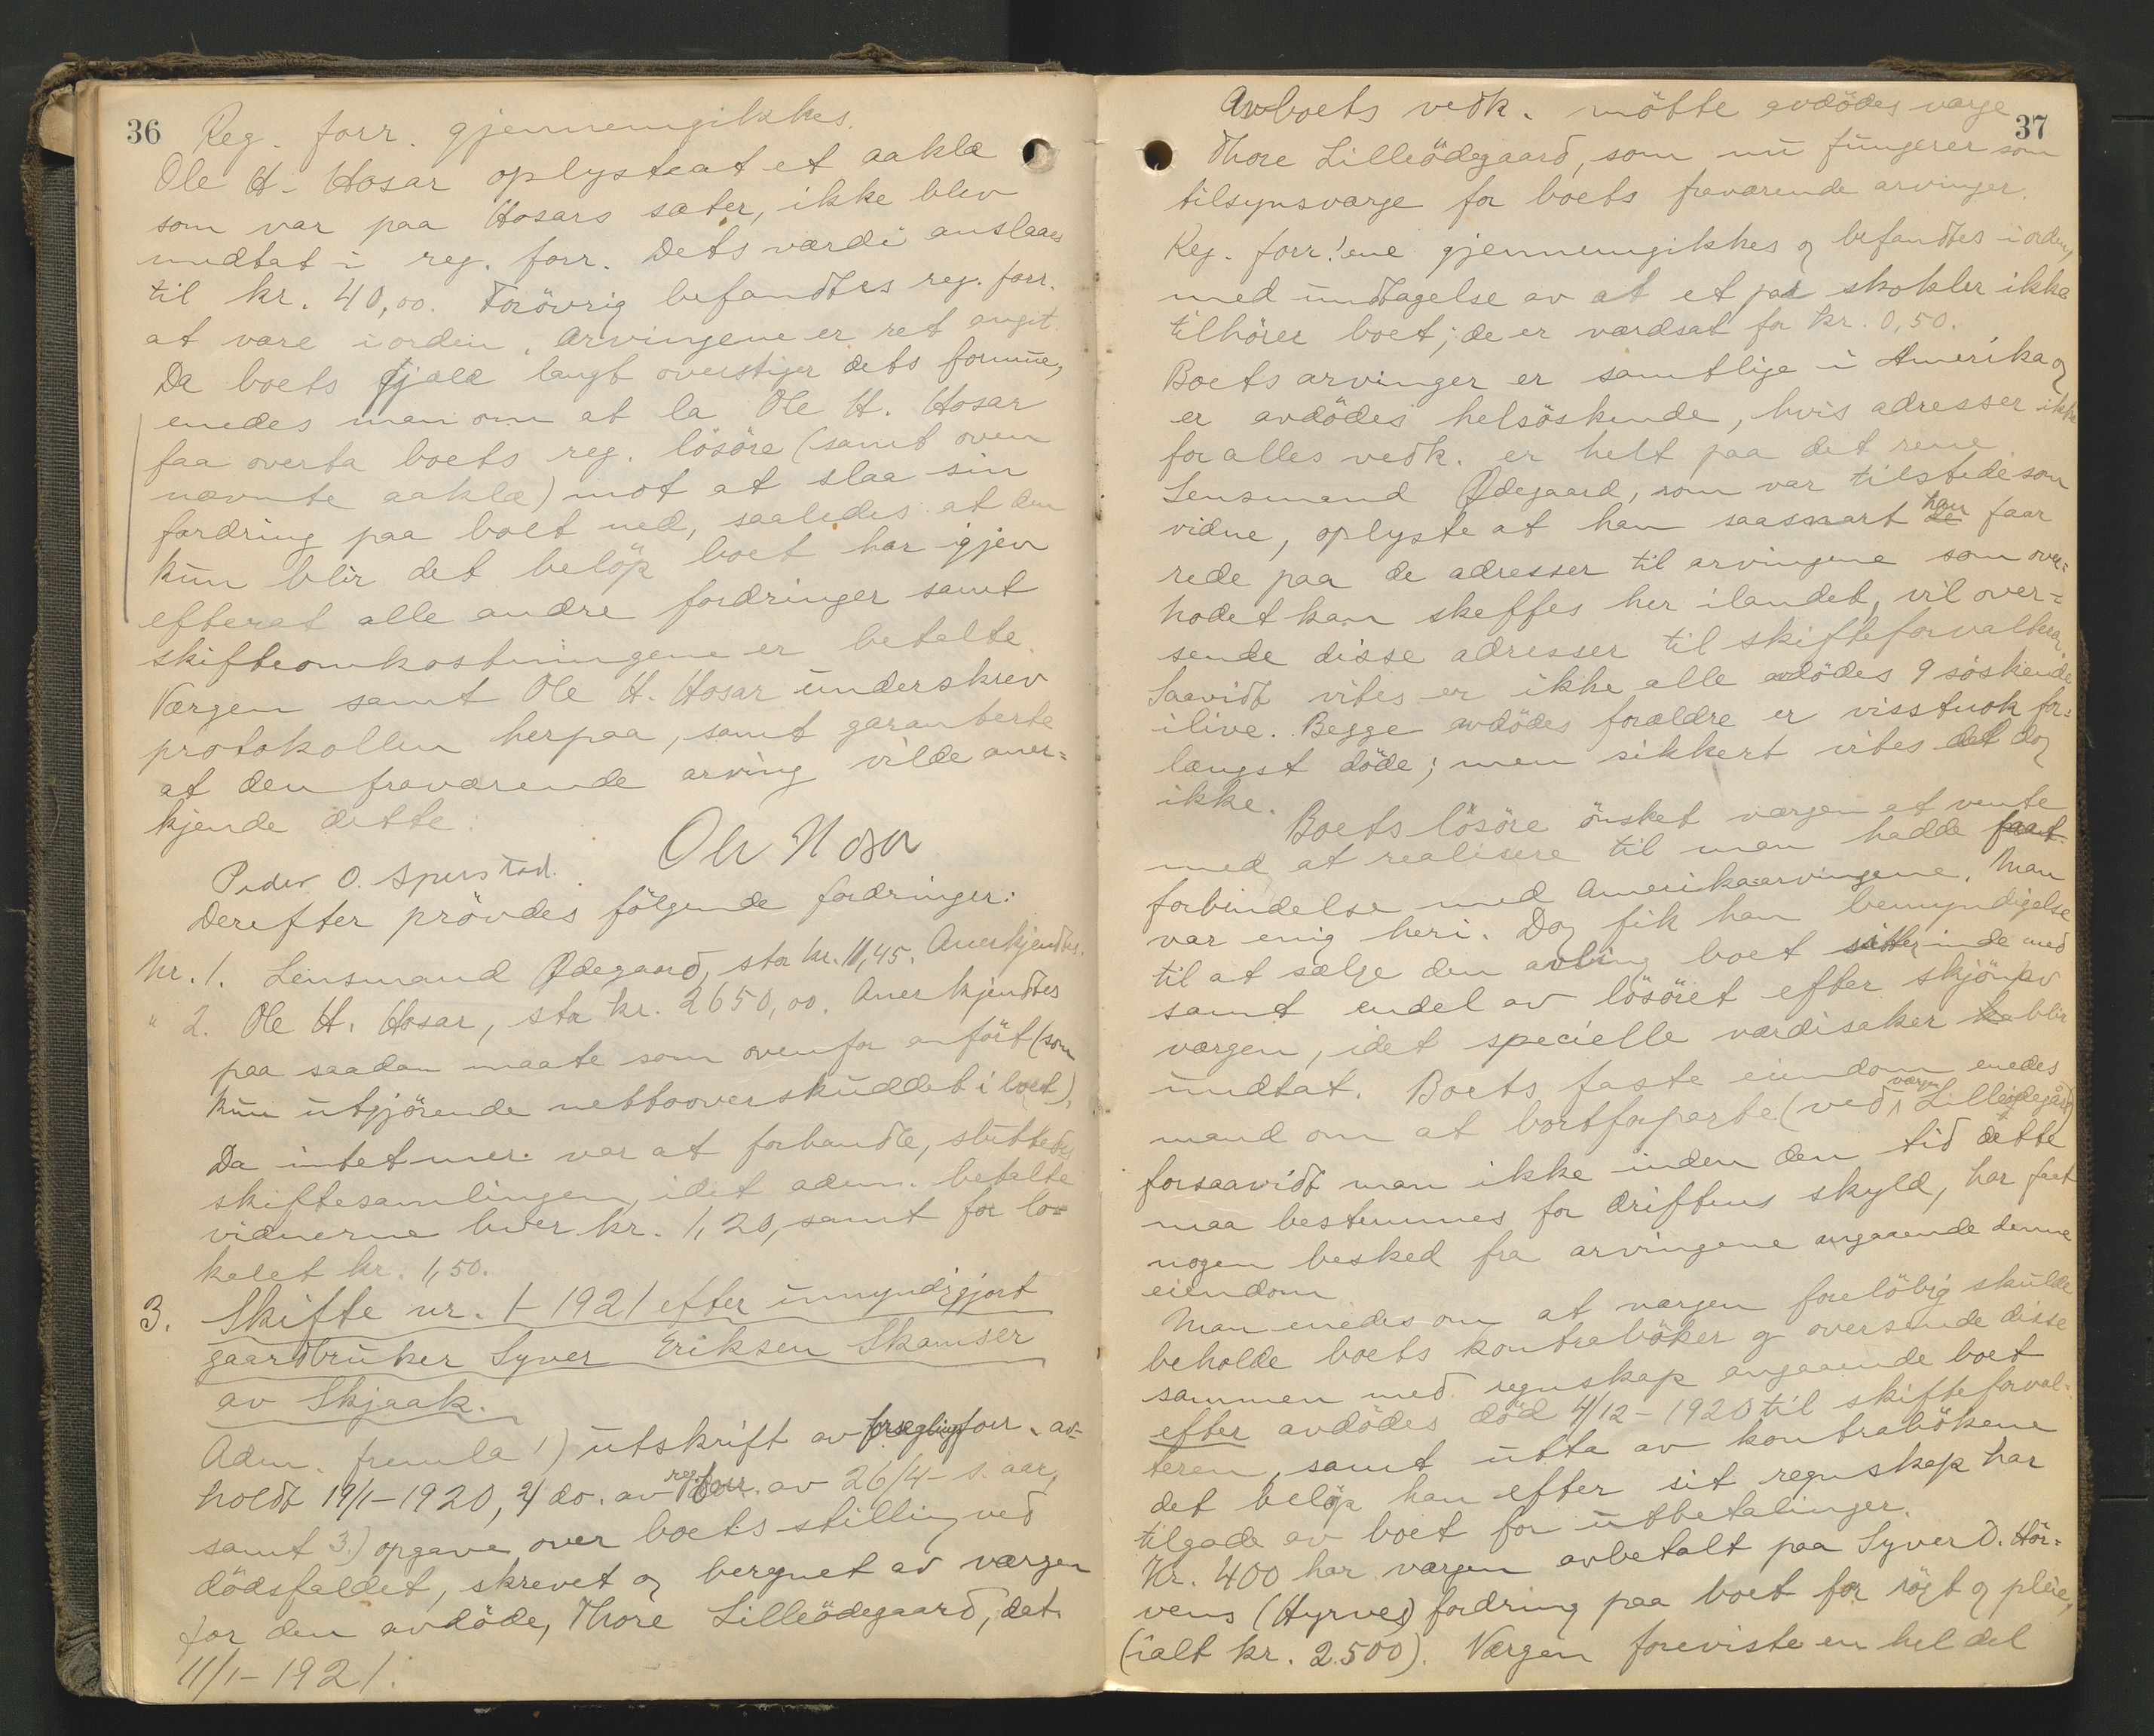 36
Reg. forr. gjennemgikkes.
Ole H. Hosar oplyste at et aaklæ
som var paa Hosars sæter, ikke blev
medtat i reg. forr. Dets værdi anslaaes
til kr. 40,00. Forövrig befandtes reg. forr.
at være i orden. Arvingene er ret angit.
Da boets gjæld langt overstiger dets formue,
enedes man om at la Ole H. Hosar
faa overta boets reg. lösöre (samt oven
nævnte aaklæ) mot at slaa sin
fordring paa boet ned, saaledes at den
kun blir det belöp boet har igjen
efterat alle andre fordringer samt
skifteomkostningene er betalte.
Værgen samt Ole H. Hosar underskrev
protokollen herpaa, samt garanterte
at den fraværende arving vilde aner=
kjende dette.
Ole Hosar
Peder O. Sperstad.
Derefter prövdes fölgende fordringer:
Nr. 1. Lensmand Ødegaard, stor kr. 11,45. Anerkjendtes.
" 2. Ole H. Hosar, stor kr. 2650,00. Anerkjendtes
paa saadan maate som ovenfor anfört (som
kun utgjörende nettooverskuddet i boet).
Da intet mer var at forhandle, sluttedes
skiftesamlingen, idet adm. betalte
vidnerne hver kr. 1,20, samt for lo=
kalet kr. 1,50.
3. Skifte nr. 1-1921 efter umyndiggjort
gaardbruker Syver Eriksen Skamser
av Skjaak.
Adm. fremla 1) utskrift av forseglingsforr. av=
holdt 19/1-1920, 2) do. av reg.forr. av 26/4- s. aar,
samt 3.) opgave over boets stilling ved
dödsfaldet, skrevet og beregnet av værgen
for den avdöde, Thore Lilleödegaard, dat.
11/1-1921.
37
Av boets vedk. mötte avdödes værge
Thore Lilleödegaard, som nu fungerer som
tilsynsværge for boets fraværende arvinger.
Reg. forr!ene gjennemgikkes og befandtes i orden,
med undtagelse av at et par skokler ikke
tilhörer boet; de er værdsat for kr. 0,50.
Boets arvinger er samtlige i Amerika og
er avdödes helsöskende, hvis adresser ikke
for alles vedk. er helt paa det rene
Lensmand Ødegaard, som var tilstede som
vidne, oplyste at han saasnart han faar
rede paa de adresser til arvingene som over=
hodet kan skaffes her i landet, vil over=
sende disse adresser til skifteforvalteren.
Saavidt vites er ikke alle avdödes 9 söskende
ilive. Begge avdödes forældre er visstnok for=
længst döde; men sikkert vites det dog
ikke.
Boets lösöre önsket værgen at vente
med at realisere til man hadde faat
forbindelse med Amerika-arvingene. Man
var enig heri. Dog fik han bemyndigelse
til at sælge den avling boet sitter inde med
samt endel av lösöret efter skjön av
værgen, idet specielle værdisaker blir
undtat. Boets faste eiendom enedes
mand om at bortforparte (ved værgen Lilleödegård)
forsaavidt man ikke inden den tid dette
maa bestemmes for driftens skyld, har faat
nogen besked fra arvingene angaaende denne
eiendom
Man enedes om at værgen foreløbig skulde
beholde boets kontraböker og oversende disse
sammen med regnskap angaaende boet
efter avdödes död 4/12-1920 til skifteforval=
teren, samt utta av kontrabökene
det belöp han efter sit regnskap har
tilgode av boet for utbetalinger.
Kr. 400 har værgen avbetalt paa Syver O. Hör=
vens (Hyrves) fordring paa boet for røgt og pleie,
(ialt kr. 2.500). Værgen foreviste en hel del